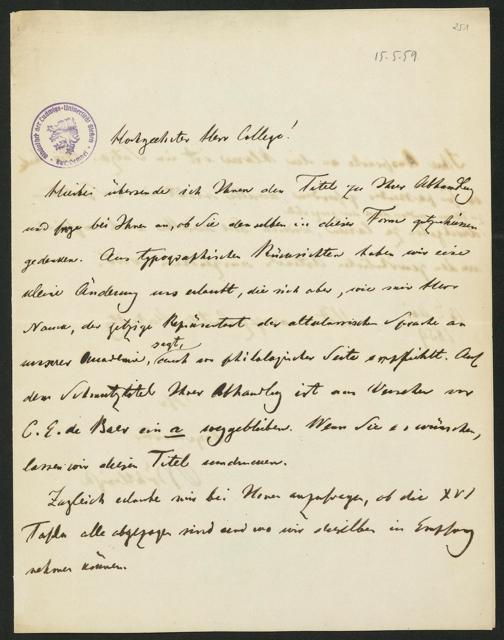 251
15-5-59
Bibliothek der Ludwigs-Universität Giessen
Hochgeehrter Herr College!
Hierbei übersende ich Ihnen den Titel zu Ihrer Abhandlg
und frage bei Ihnen an, ob Sie denselben in dieser Form gutzuheissen
gedenken. Aus typographischen Rücksichten haben wir eine
kleine Änderung uns erlaubt, die sich aber, wie mir Herr
Nauck, der jetzige Repräsentant der altclassischen Sprache an
unserer Academie, sagt, auch von philologischer Seite empfiehlt. Auf
dem Schmutztitel Ihrer Abhandlg ist am Vornamen von
C. E. de Baer ein a weggeblieben. Wenn Sie es wünschen,
lassen wir diesen Titel umdrucken.
Zugleich erlaube mir bei Ihnen anzufragen, ob die XVI
Tafeln alle abgezogen sind und wo wir dieselben in Empfang
nehmen können.